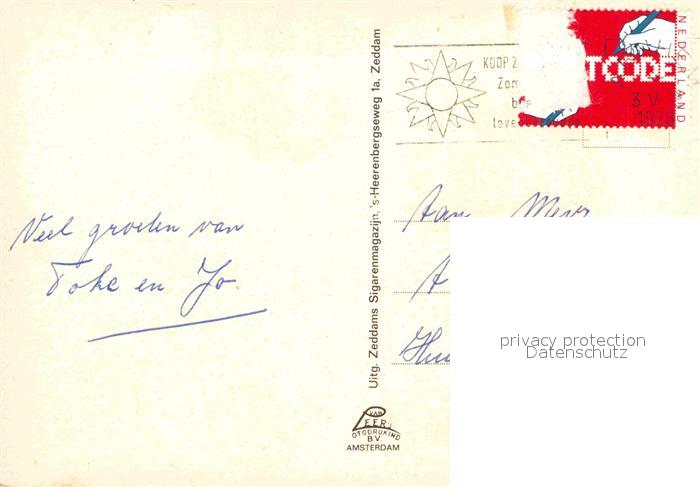 Veel groeten van
Toke en Jo.
Uitg. Zeddams Sigarenmagazijn, 's-Heerenbergseweg 1a, Zeddam
VAN
LEER'S
FOTODRUKIND
B.V.
AMSTERDAM
KOOP Z
Zom
be
TCODE
NEDERLAND
3 V
1978
Aan Mevr
A
privacy protection
Datenschutz